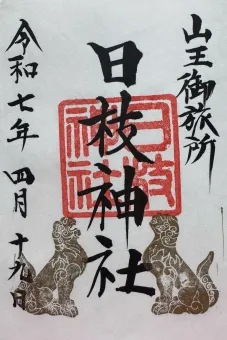 山王御旅所
日枝神社
日枝神社
令和七年 四月 十九日